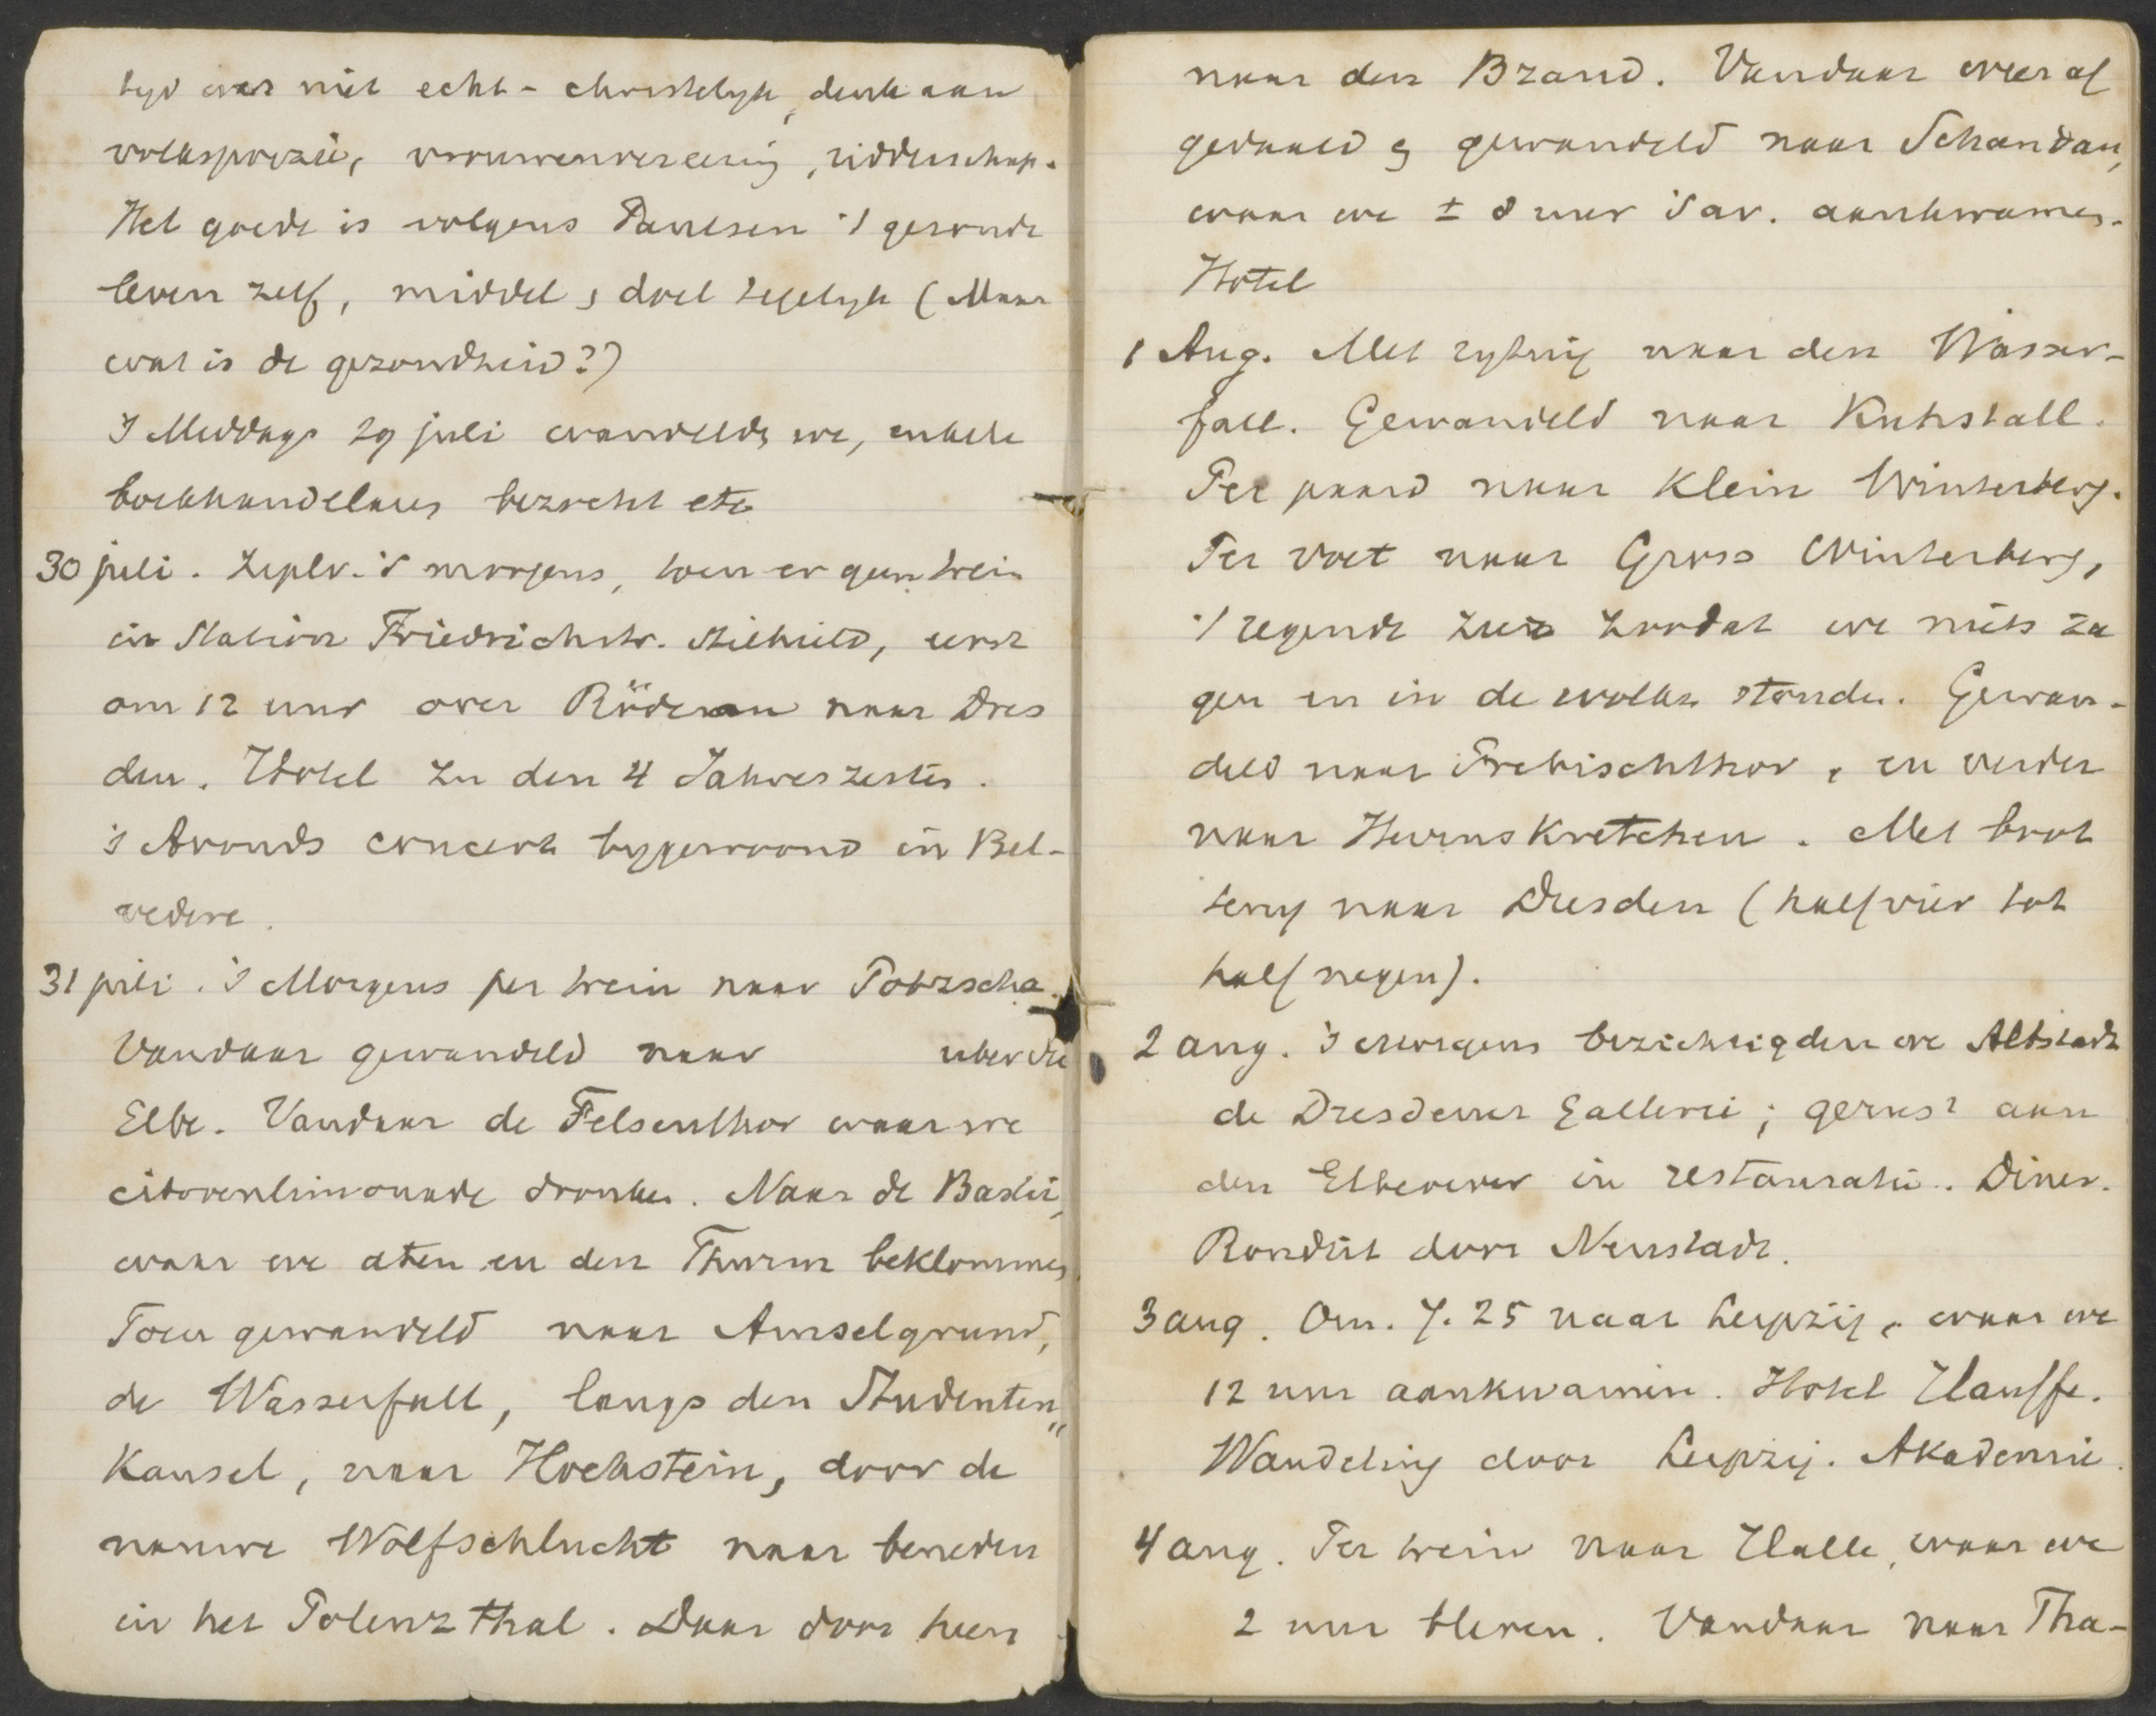 tyd was niet echt-christelyk, denk aan
volkspoezie, vrouwenvereering, ridderschap.
Het goede is volgens Paulsen 't gezonde
leven zelf, middel & doel tegelyk (Maar
wat is de gezondheid?)
's Middags 29 juli wandelde we, enkele
boekhandelaers bezocht etc
30 juli. 's morgens, toen er geen trein
in Station Friedrichstr. stilhield, eerst
om 12 uur over Röderau naar Dres
den. Hotel zu den 4 Jahreszeiten.
's Avonds concert bygewoond in Bel-
vedere.
31 juli. 's Morgens per trein naar Potzscha.
Vandaar gewandeld naar uber die
Elbe. Vandaar de Felsenthor waar we
citroenlimonade dronken. Naar de Bastei,
waar we aten en den Thurm beklommen
Toen gewandeld naar Amselgrund,
de Wasserfall, langs den Studenten„
Kansel, naar Hockstein, door de
nauwe Wolfschlucht naar beneden
in het Polenzthal. Daar door heen
naar den Brand. Vandaar weer af
gedaald & gewandeld naar Schandau,
waar we ± 8 uur 's av. aankwamen.
Hotel
1 Aug. Met rytuig naar den Wasser-
fall. Gewandeld naar Kuhstall.
Per paard naar Klein Winterberg.
Per voet naar Gross Winterberg,
't regende zeer zoodat we niets za
gen en in de wolken stonden. Gewan-
deld naar Prebischthor, en verder
naar Herrnskretchen. Met boot
terug naar Dresden (half vier tot
half negen).
2 aug. 's morgens bezichtigden we Altstadt
de Dresdener Gallerei; gerust aan
den Elbeoever in restauratie. Diner.
Rondrit door Neustadt.
3 aug. Om 7.25 naar Leipzig, waar we
12 uur aankwamen. Hotel Hauffe.
Wandeling door Leipzig. Akademie.
4 aug. Per trein naar Halle, waar we
2 uur bleven. Vandaar naar Tha-